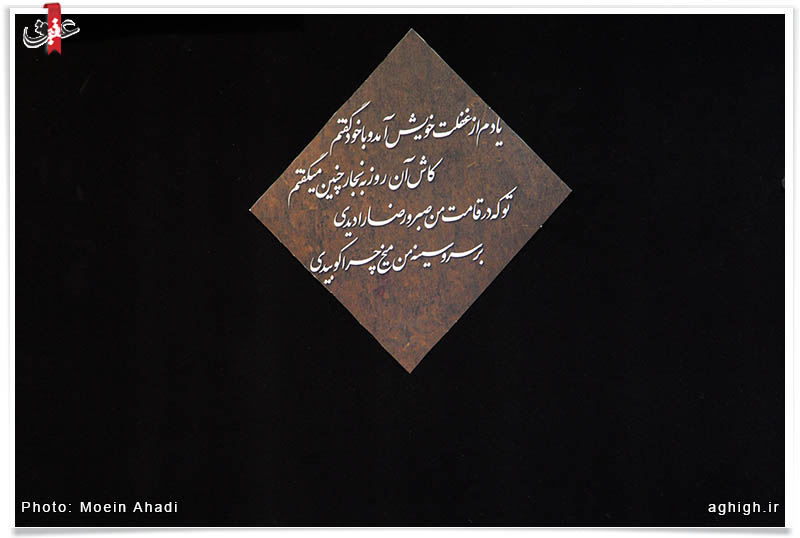 عقیق
یادم از غفلت خویش آمد و با خود گفتم
کاش آن روز به نجار چنین میگفتم
تو که در قامت من صبر و رضا را دیدی
بر سر و سینه من میخ چرا کوبیدی
Photo: Moein Ahadi
aghigh.ir